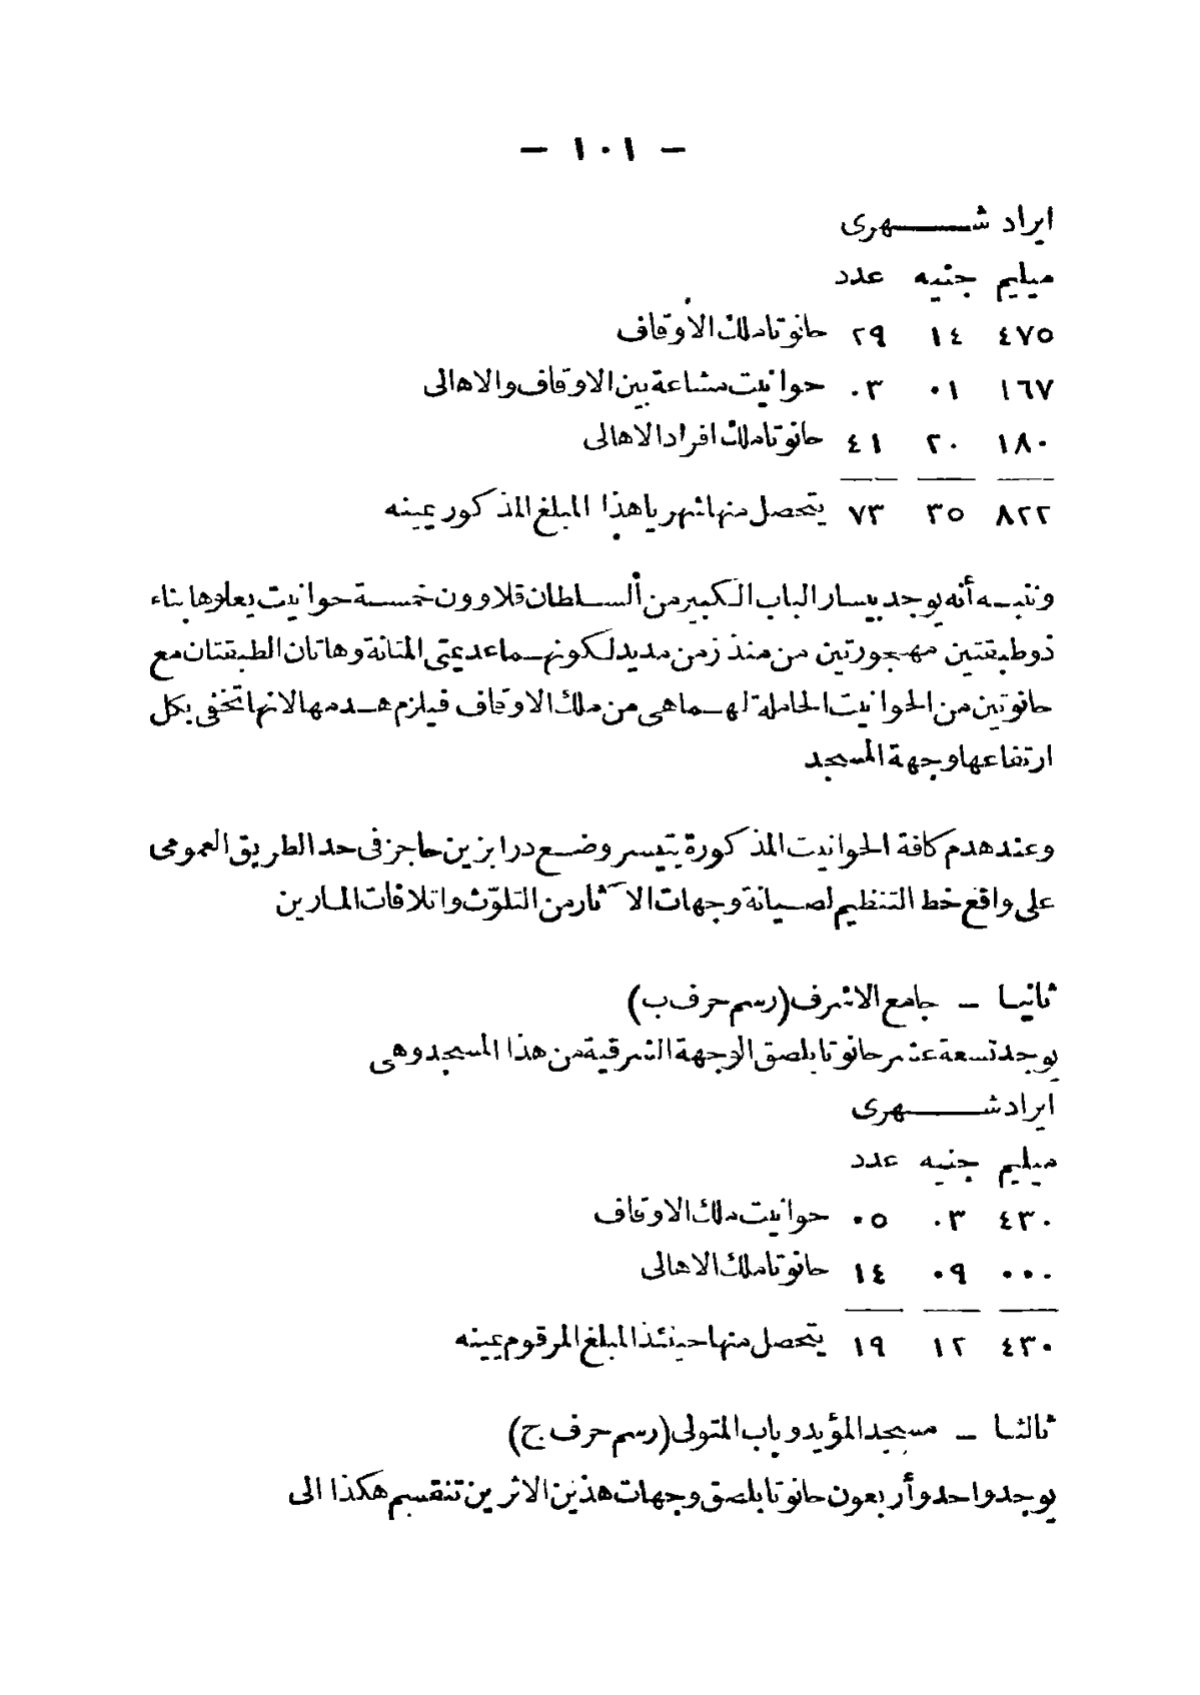 — ١٠١ —
ايراد شهرى
ميليم جنيه عدد
٤٧٥ ١٤ ٢٩ حانوتا ملك الأوقاف
١٦٧ ٠١ ٠٣ حوانيت مشاعة بين الاوقاف والاهالى
١٨٠ ٢٠ ٤١ حانوتا ملك افراد الاهالى
٨٢٢ ٣٥ ٧٣ يتحصل منها شهريا هذا المبلغ المذكور عينه
وننبه أنه يوجد بيسار الباب الكبير من السلطان قلاوون خمسة حوانيت يعلوها بناء
ذو طبقتين مهجورتين من منذ زمن مديد لكونهما عديمتى المتانة وهاتان الطبقتان مع
حانوتين من الحوانيت الحاملة لهما هى من ملك الاوقاف فيلزم هدمها لانها تخفى بكل
ارتفاعها وجهة المسجد
وعند هدم كافة الحوانيت المذكورة يتيسر وضع درابزين حاجز فى حد الطريق العمومى
على واقع خط التنظيم لصيانة وجهات الآثار من التلوّث واتلافات المارين
ثانيا — جامع الاشرف (رسم حرف ب)
يوجد تسعة عشر حانوتا بلصق الوجهة الشرقية من هذا المسجد وهى
ايراد شهرى
ميليم جنيه عدد
٤٣٠ ٠٣ ٠٥ حوانيت ملك الاوقاف
٠٠٠ ٠٩ ١٤ حانوتا ملك الاهالى
٤٣٠ ١٢ ١٩ يتحصل منها حينئذ المبلغ المرقوم عينه
ثالثا — مسجد المؤيد وباب المتولى (رسم حرف ج)
يوجد واحد وأربعون حانوتا بلصق وجهات هذين الاثرين تنقسم هكذا الى